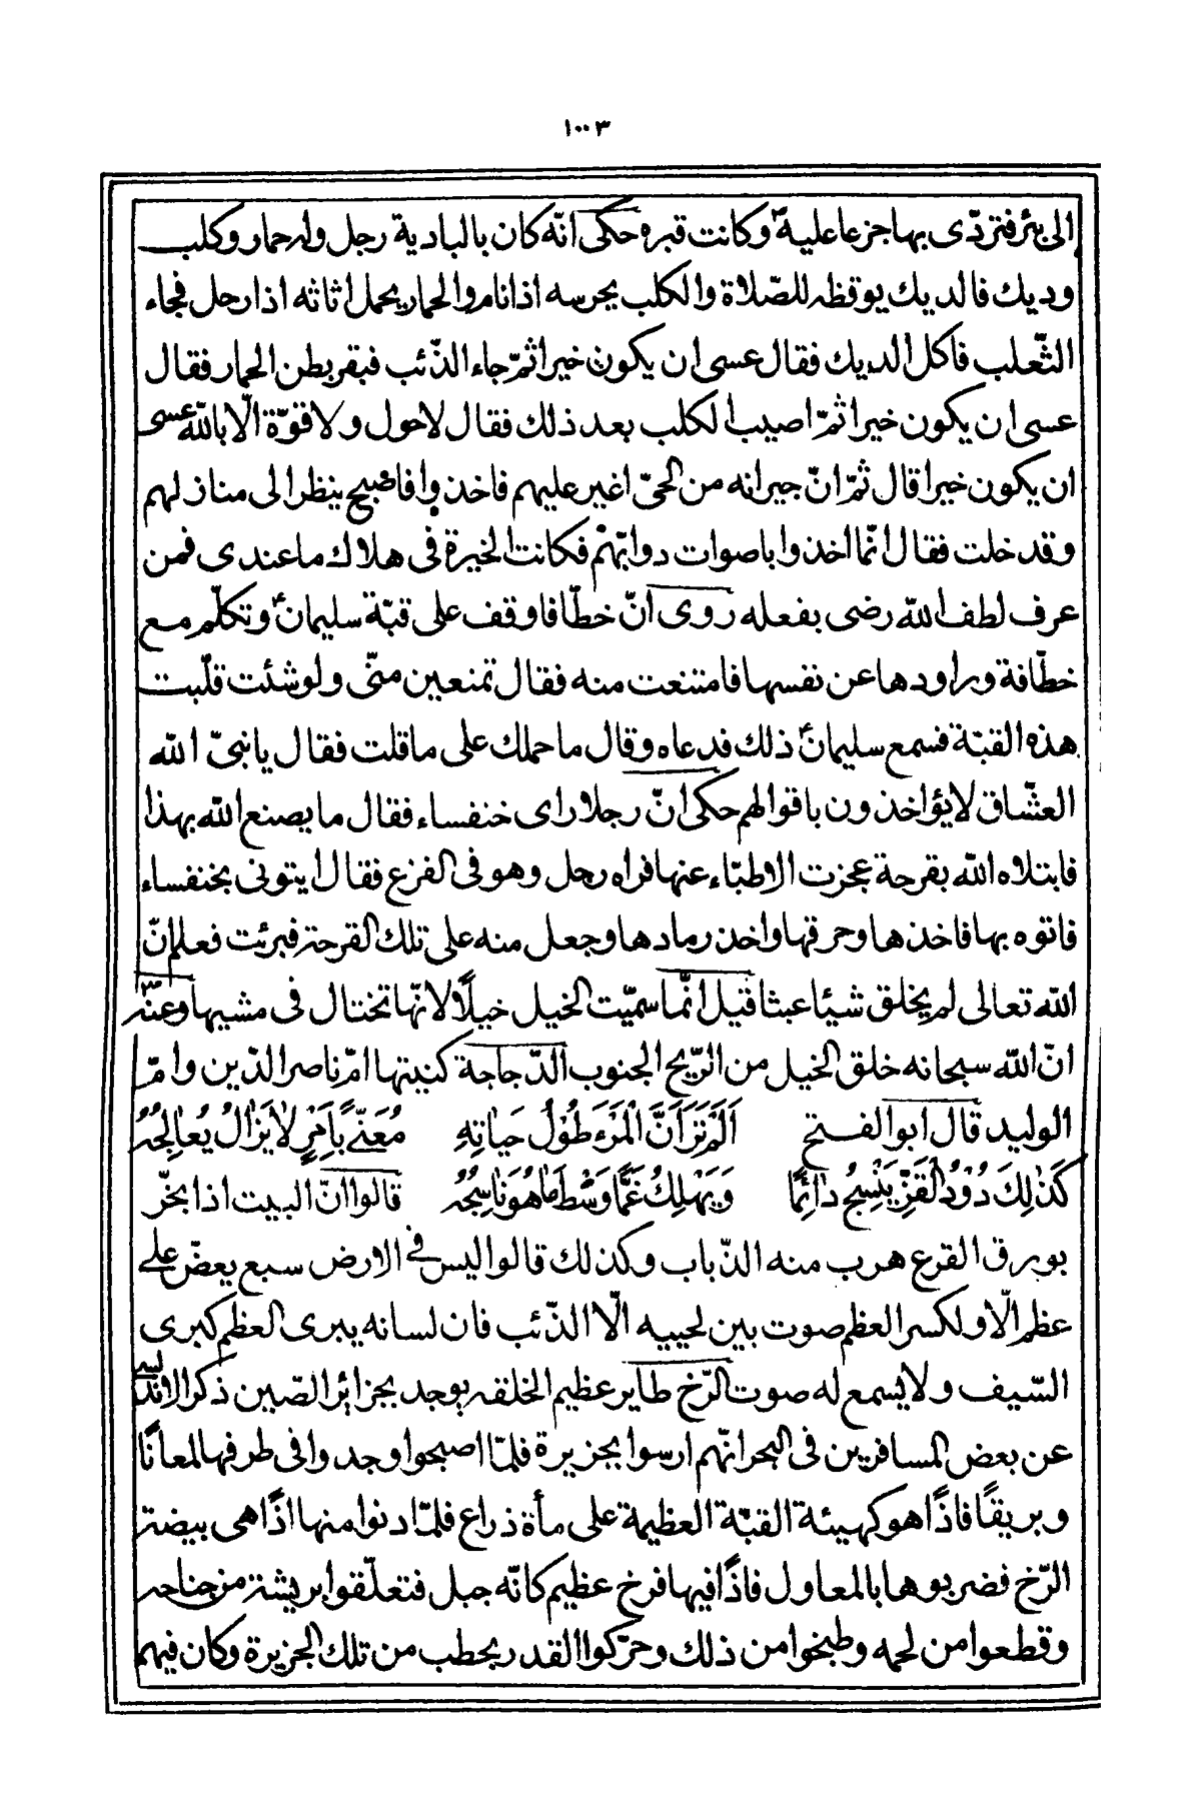 ١٠٠٣
الى بئر فتردّى بها جزعا عليه وكانت قبره حكى انّه كان بالبادية رجل وله حمار وكلب
وديك فالديك يوقظه للصّلاة والكلب يحرسه اذا نام والحمار يحمل اثاثه اذا رحل فجاء
الثّعلب فاكل الديك فقال عسى ان يكون خيرا ثمّ جاء الذّئب فبقر بطن الحمار فقال
عسى ان يكون خيرا ثمّ اصيب الكلب بعد ذلك فقال لا حول ولا قوّة الّا باللّه عسى
ان يكون خيرا قال ثمّ انّ جيرانه من الحىّ اغير عليهم فاخذوا فاصبح ينظر الى منازلهم
وقد خلت فقال انّما اخذوا باصوات دوابّهم فكانت الخيرة فى هلاك ما عندى فمن
عرف لطف اللّه رضى بفعله روى انّ خطّافا وقف على قبّة سليمانؑ وتكلّم مع
خطّافة وراودها عن نفسها فامتنعت منه فقال تمنعين منّى ولو شئت قلّبت
هذه القبّة فسمع سليمانؑ ذلك فدعاه وقال ما حملك على ما قلت فقال يا نبىّ اللّه
العشّاق لا يؤاخذون باقوالهم حكى انّ رجلا راى خنفساء فقال ما يصنع اللّه بهذا
فابتلاه اللّه بقرحة عجزت الاطبّاء عنها فراه رجل وهو فى الفزع فقال ايتونى بخنفساء
فاتوه بها فاخذها وحرقها واخذ رمادها وجعل منه على تلك القرحة فبرئت فعلم انّ
اللّه تعالى لم يخلق شيئا عبثا قيل انّما سمّيت الخيل خيلًا لانّها تختال فى مشيها وعنهؐ
انّ اللّه سبحانه خلق الخيل من الرّيح الجنوب الدّجاجة كنيتها امّ ناصر الدّين وامّ
الوليد قال ابو الفتح اَلَمْ تَرَ اَنَّ الْمَرْءَ طُوْلَ حَيَاتِهِ مُعَنًّى بِاَمْرٍ لَا يَزَالُ يُعَالِجُهُ
كَذٰلِكَ دُوْدُ الْقَزِّ يَنْسِجُ دَائِمًا وَيَهْلِكُ غَمًّا وَسْطَ مَا هُوَ نَاسِجُهُ قالوا انّ البيت اذا بخّر
بورق القرع هرب منه الذّباب وكذلك قالوا ليس فى الارض سبع يعضّ على
عظم الّا ولكسر العظم صوت بين لحييه الّا الذّئب فان لسانه يبرى العظم كبرى
السّيف ولا يسمع له صوت الرّخ طاير عظيم الخلقه يوجد بجزائر الصّين ذكر الاندلسى
عن بعض المسافرين فى البحر انّهم ارسوا بجزيرة فلمّا اصبحوا وجدوا فى طرفها لمعانًا
وبريقًا فاذًا هو كهيئة القبّة العظيمة على مأة ذراع فلمّا دنوا منها اذًا هى بيضة
الرّخ فضربوها بالمعاول فاذًا فيها فرخ عظيم كانّه جبل فتعلّقوا بريشة من جناحه
وقطعوا من لحمه وطبخوا من ذلك وحرّكوا القدر بحطب من تلك الجزيرة وكان فيهم